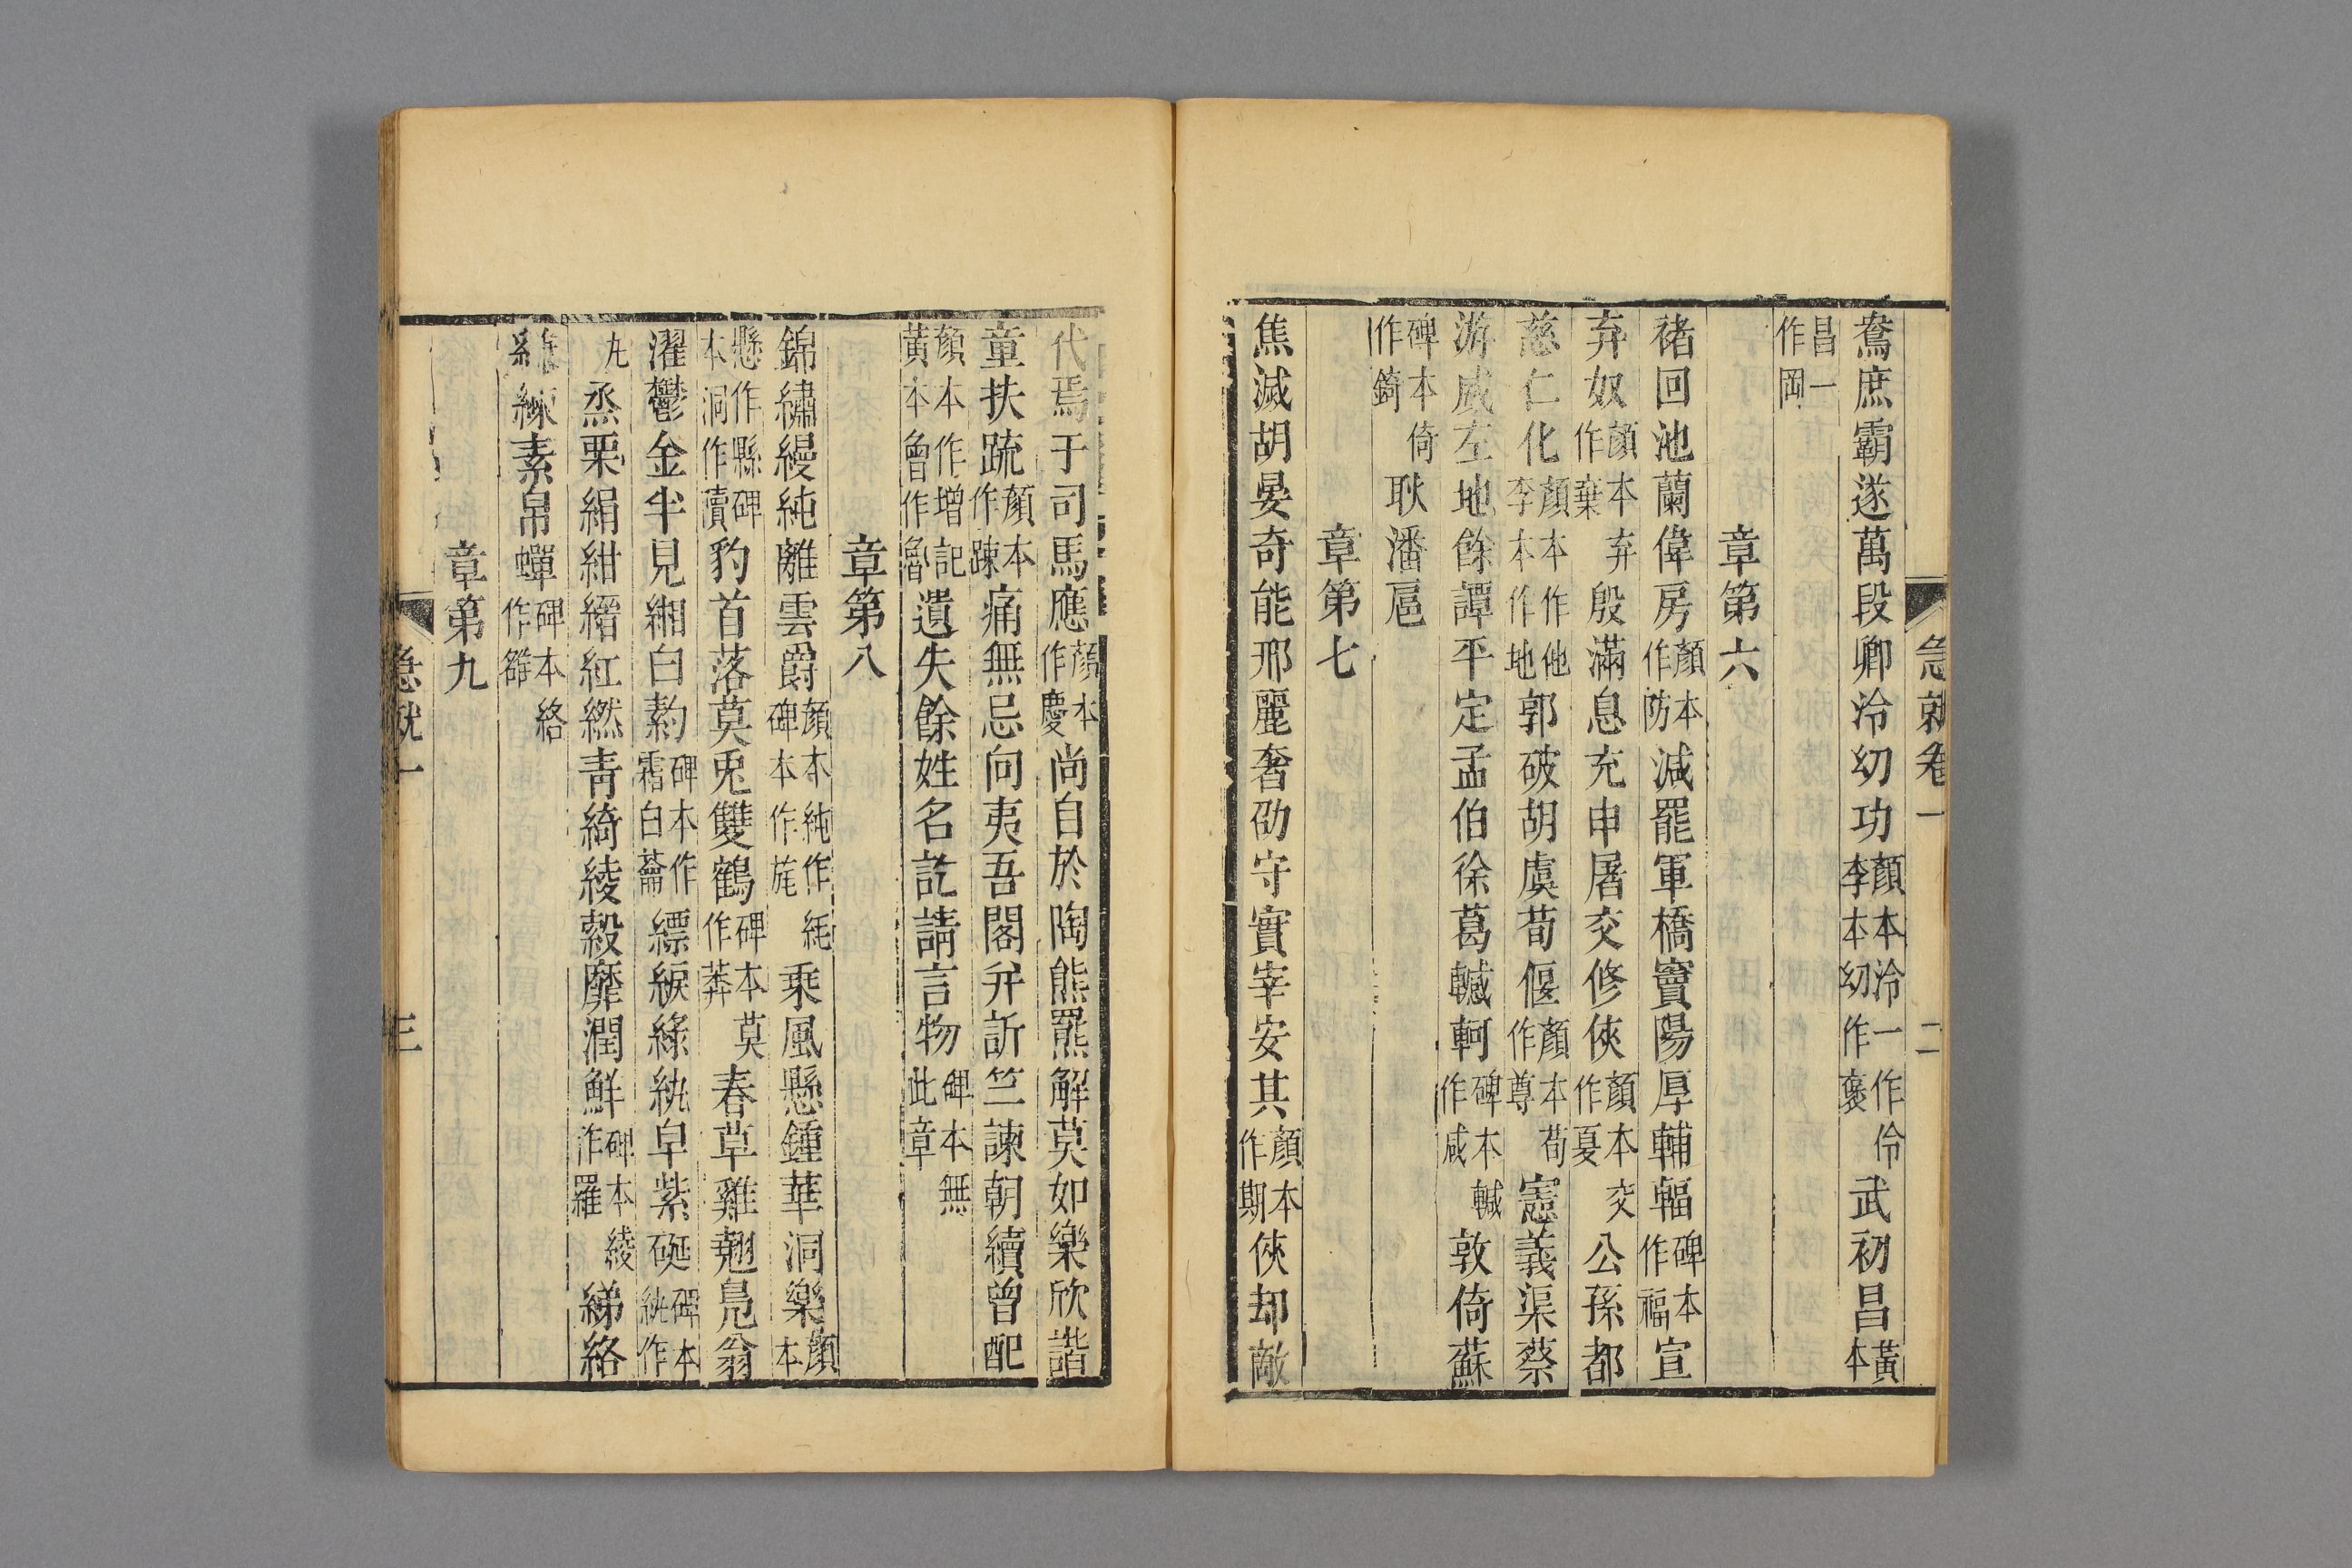 急就卷一 二
鴦庶霸遂萬段卿泠幼功顏本泠一作伶李本幼作褒武初昌黃本
昌一作岡
章第六
褚回池蘭偉房顏本作防減罷軍橋竇陽厚輔輻碑本作福宣
弃奴顏本弃作棄殷滿息充申屠夾修俠顏本夾作夏公孫都
慈仁化顏本作他李本作地郭破胡虞荀偃顏本荀作尊憲義渠蔡
游威左地餘譚平定孟伯徐葛轗軻碑本轗作咸敦倚蘇
碑本倚作錡耿潘扈
章第七
焦滅胡晏奇能邢麗奢劭守實宰安其顏本作期俠却敵
代焉于司馬應顏本作慶尚自於陶熊羆解莫如樂欣諧
童扶疏顏本作踈痛無忌向夷吾閎弁訢竺諫朝續曾配
顏本作增記黃本會作魯遺失餘姓名訖請言物碑本無此章
章第八
錦繡縵純離雲爵顏本純作紽碑本作旄乘風懸鍾華洞樂顏本
懸作縣碑本洞作瀆豹首落莫兎雙鶴碑本莫作莽春草雞翹鳧翁
濯鬱金半見緗白䋤碑本作霜白蘥縹綟綠紈皁紫硟碑本紈作
丸烝栗絹紺縉紅繎青綺綾縠靡潤鮮碑本綾作羅綈絡
縑練素帛蟬碑本絡作雒
章第九
急就一 三